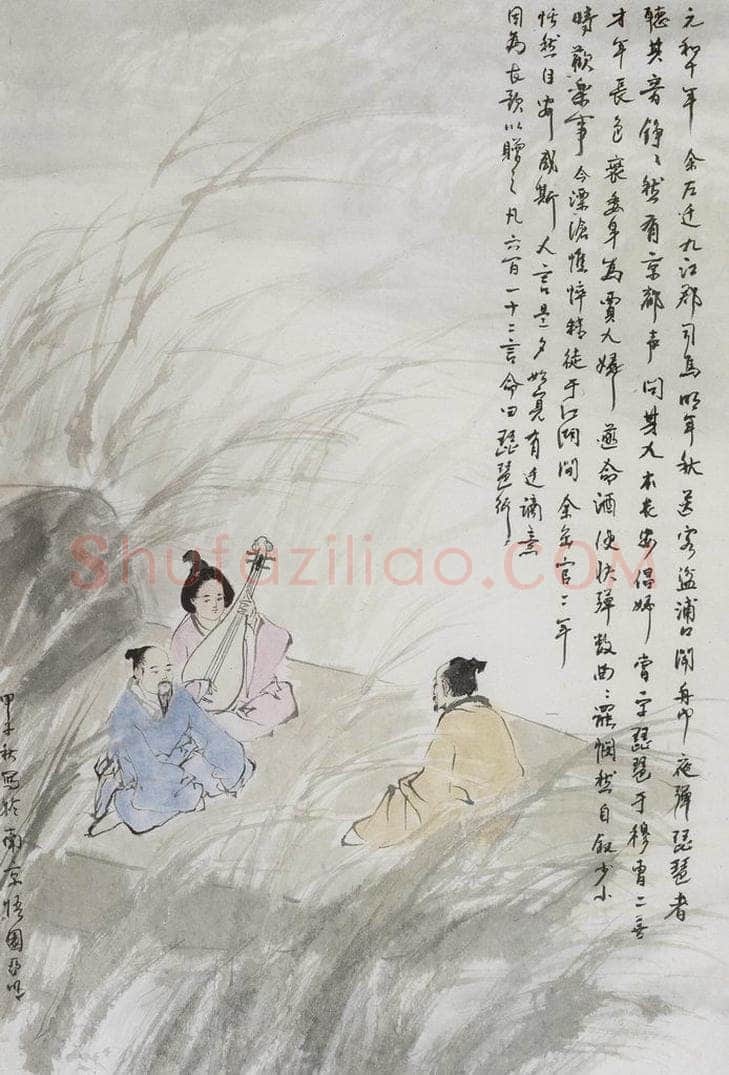 元和十年余左迁九江郡司馬明年秋送客湓浦口聞舟中夜弹琵琶者
聽其音錚〻然有京都声问其人本长安倡婦嘗学琵琶于穆曹二善
才年長色衰委身为賈人婦遂命酒使快弹数曲〻罷悯然自叙少小
時歡樂事今漂淪憔悴转徒于江湖间余出官二年
恬然自安感斯人言是夕始覺有迁谪意
因為長歌以贈之凡六百一十二言命曰琵琶行
甲子秋写於南京悟園亞明
Shufaziliao.COM